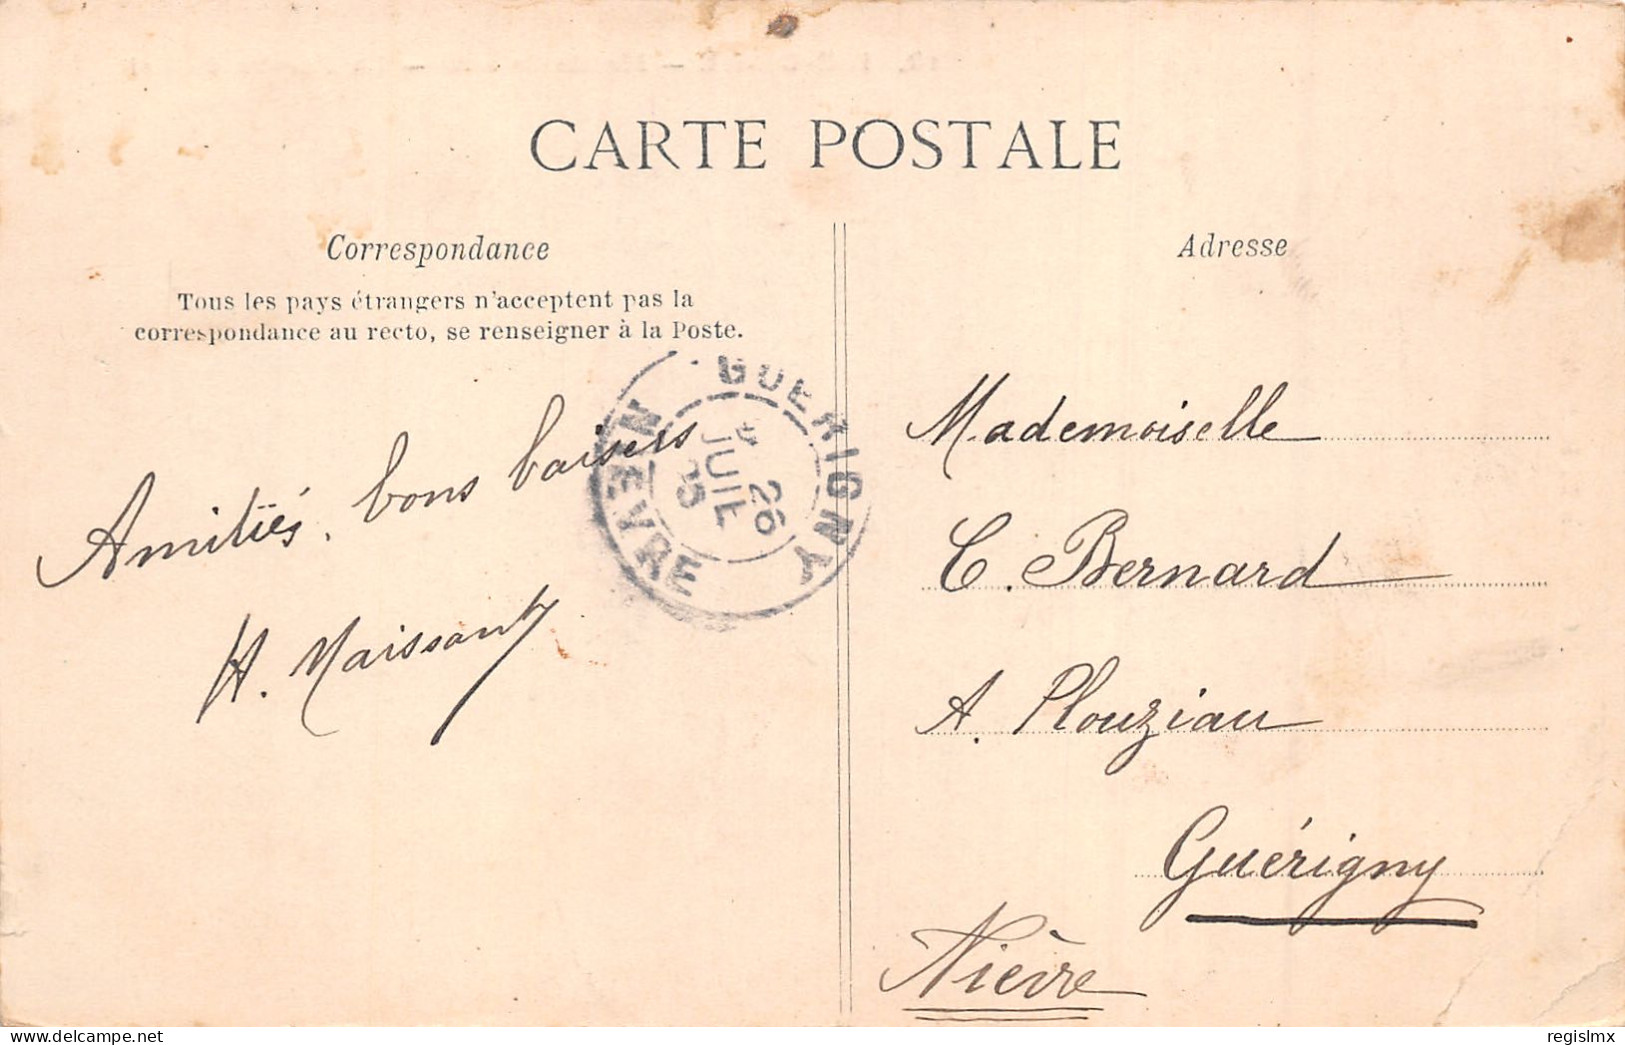 CARTE POSTALE
Correspondance
Tous les pays étrangers n'acceptent pas la
correspondance au recto, se renseigner à la Poste.
Amitiés, bons baisers
H. Maissant
GUERIGNY
NIEVRE
26
JUIL
05
Adresse
Mademoiselle
C. Bernard
A. Plouziau
Guérigny
Nièvre
delcampe.net
regislmx